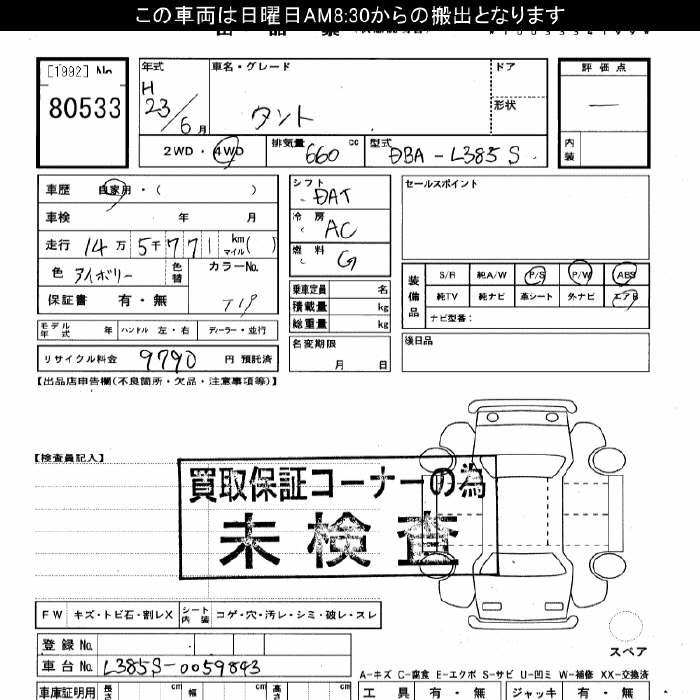 この車両は日曜日AM8:30からの搬出となります
出品票
[1992] No 80533
年式 H 23/6月
車名・グレード タント
ドア
形状
評価点 —
内装
2WD・4WD
排気量 660 cc
型式 DBA-L385S
車歴 自家用・( )
車検 年 月
走行 14万5千771 km マイル( )
色 アイボリー 色替
カラーNo. T19
保証書 有・無
シフト DAT
冷房 AC
燃料 G
乗車定員 名
積載量 kg
総重量 kg
セールスポイント
装備品
S/R 純A/W P/S P/W ABS
純TV 純ナビ 革シート 外ナビ エアB
ナビ型番:
モデル年式 年 ハンドル 左・右 ディーラー・並行
名変期限 月 日
後日品
リサイクル料金 9790 円 預託済
【出品店申告欄(不良箇所・欠品・注意事項等)】
【検査員記入】
買取保証コーナーの為
未検査
FW キズ・トビ石・割レX シート内装 コゲ・穴・汚レ・シミ・破レ・スレ
スペア
登録No.
車台No. L385S-0059843
A-キズ C-腐食 E-エクボ S-サビ U-凹ミ W-補修 XX-交換済
車庫証明用 長さ cm 幅 cm 高さ cm
工具 有・無 ジャッキ 有・無